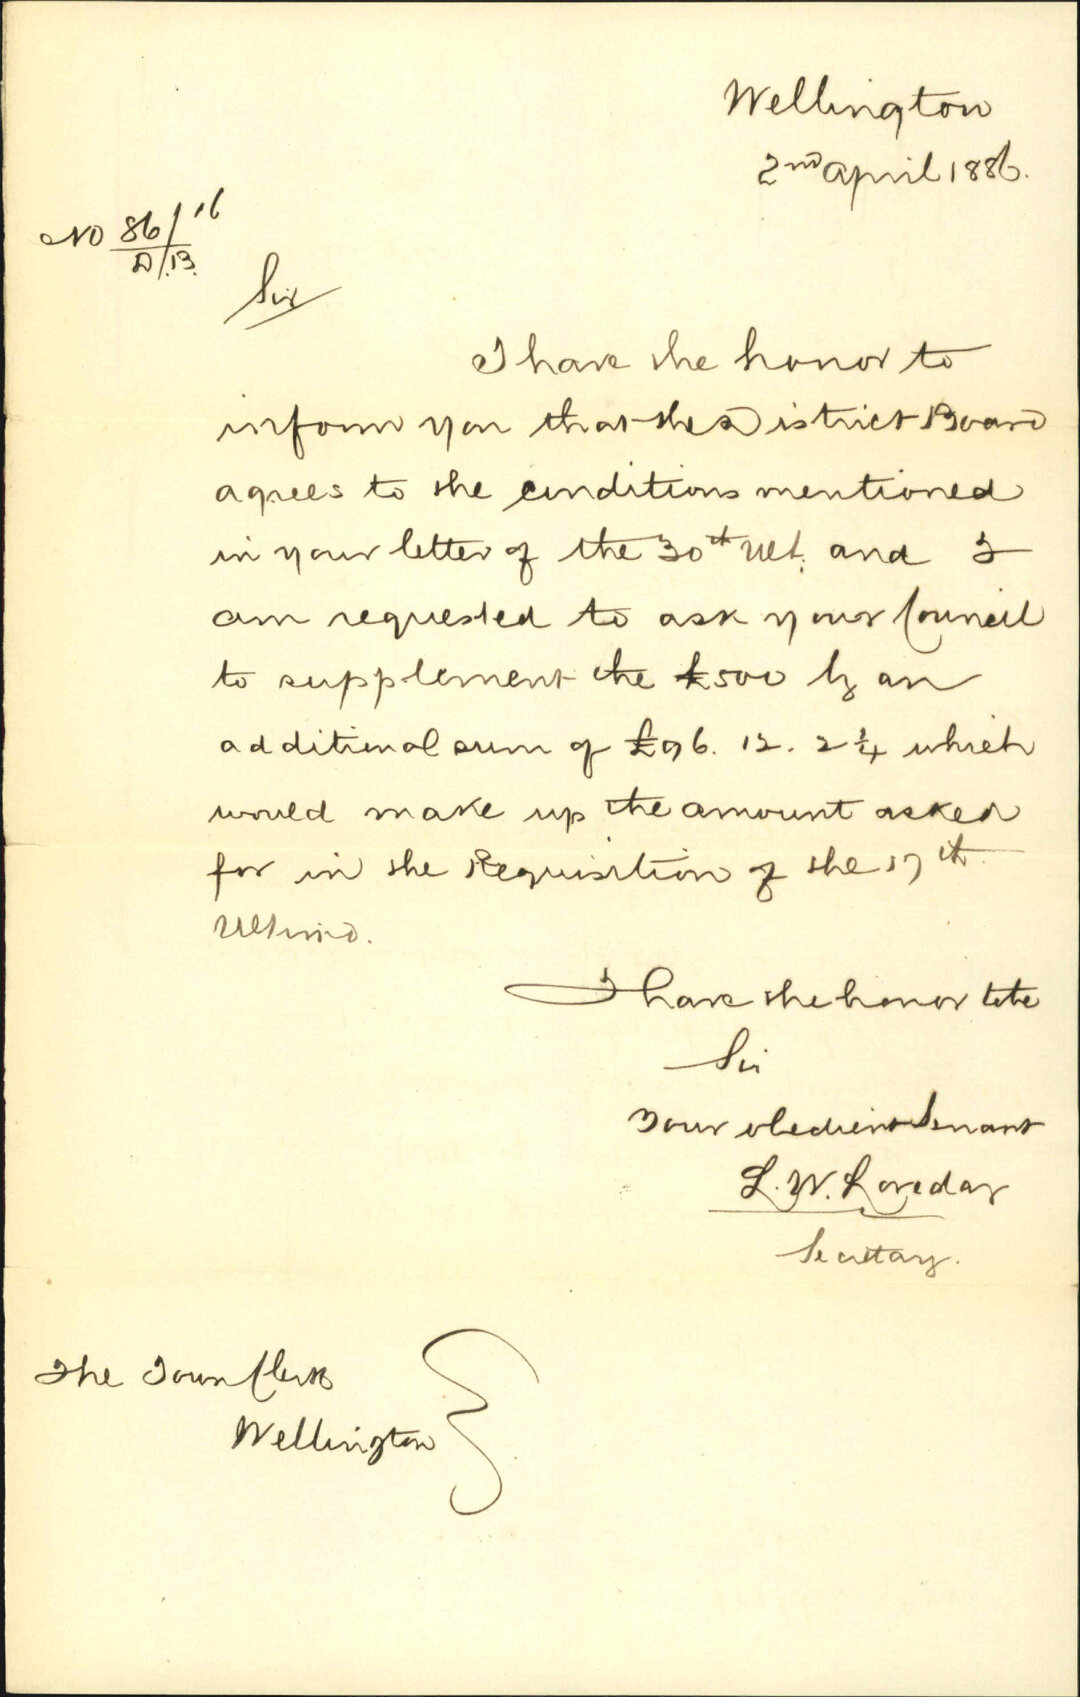 Wellington
2nd April 1886.
No 86/16
D/B.
Sir
I have the honor to
inform you that the District Board
agrees to the conditions mentioned
in your letter of the 30th Ult. and I
am requested to ask your Council
to supplement the £500 by an
additional sum of £96. 12. 2¼ which
would make up the amount asked
for in the Requisition of the 17th
Ultimo.
I have the honor to be
Sir
Your obedient Servant
L. W. Loveday
Secretary.
The Town Clerk
Wellington